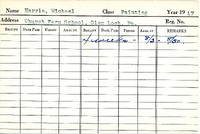 Name Harris, Michael Class Painting Year 1947
Address Church Farm School, Glen Loch, Pa. Reg. No.
Receipt Date Paid Period Amount Receipt Date Paid Period Amount Receipt Date Paid Period Amount
4 weeks -